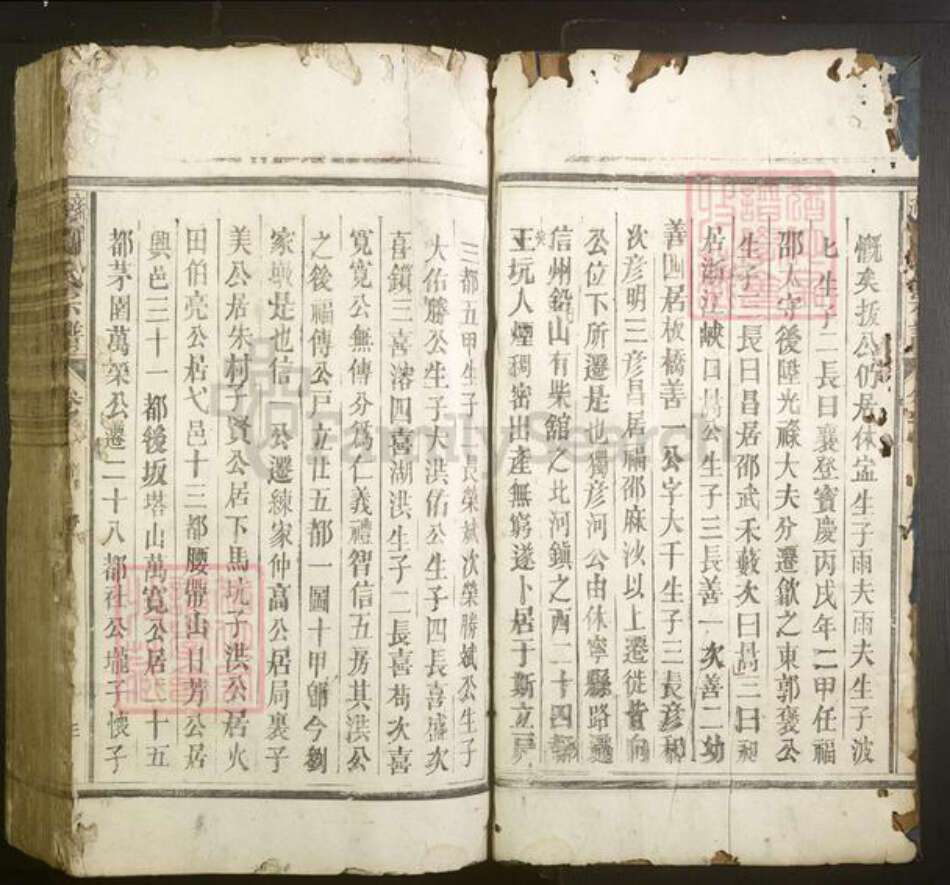 慨矣援公仍居休寍生子雨夫雨夫生子波
七生子二長曰襄登寶慶丙戌年二甲任福
邵太守後陞光祿大夫分遷歙之東郭褒公
生子 長曰昌居邵武禾藪次曰昺三曰昶
居浙江峽口昺公生子三長善一次善二幼
善四居板橋善一公字大千生子三長彦和
次彦明三彦昌居福邵麻沙以上遷徙皆向
公位下所遷是也獨彦河公由休寧縣路過
信州鉛山有柴舘之北河鎮之西二十四都
王坑人煙稠密出產無窮遂卜居于斯立戸
三都五甲生子 長榮斌次榮勝斌公生子
大佑勝公生子大洪佑公生子四長喜盛次
喜鎖三喜溶四喜湖洪生子二長喜苟次喜
寛寛公無傳分爲仁義禮智信五房其洪公
之後福傳公戸立仕五都一圖十甲 今劉
家墩是也信 公遷練家仲高公居局裏子
美公居朱村子賢公居下馬坑子洪公居火
田伯亮公居弋邑十三都腰帶山日芳公居
興邑三十一都後坂塔山萬寛公居 十五
都茅園萬榮公遷二十八都社公壠子懷子
宗譜
FamilySearch